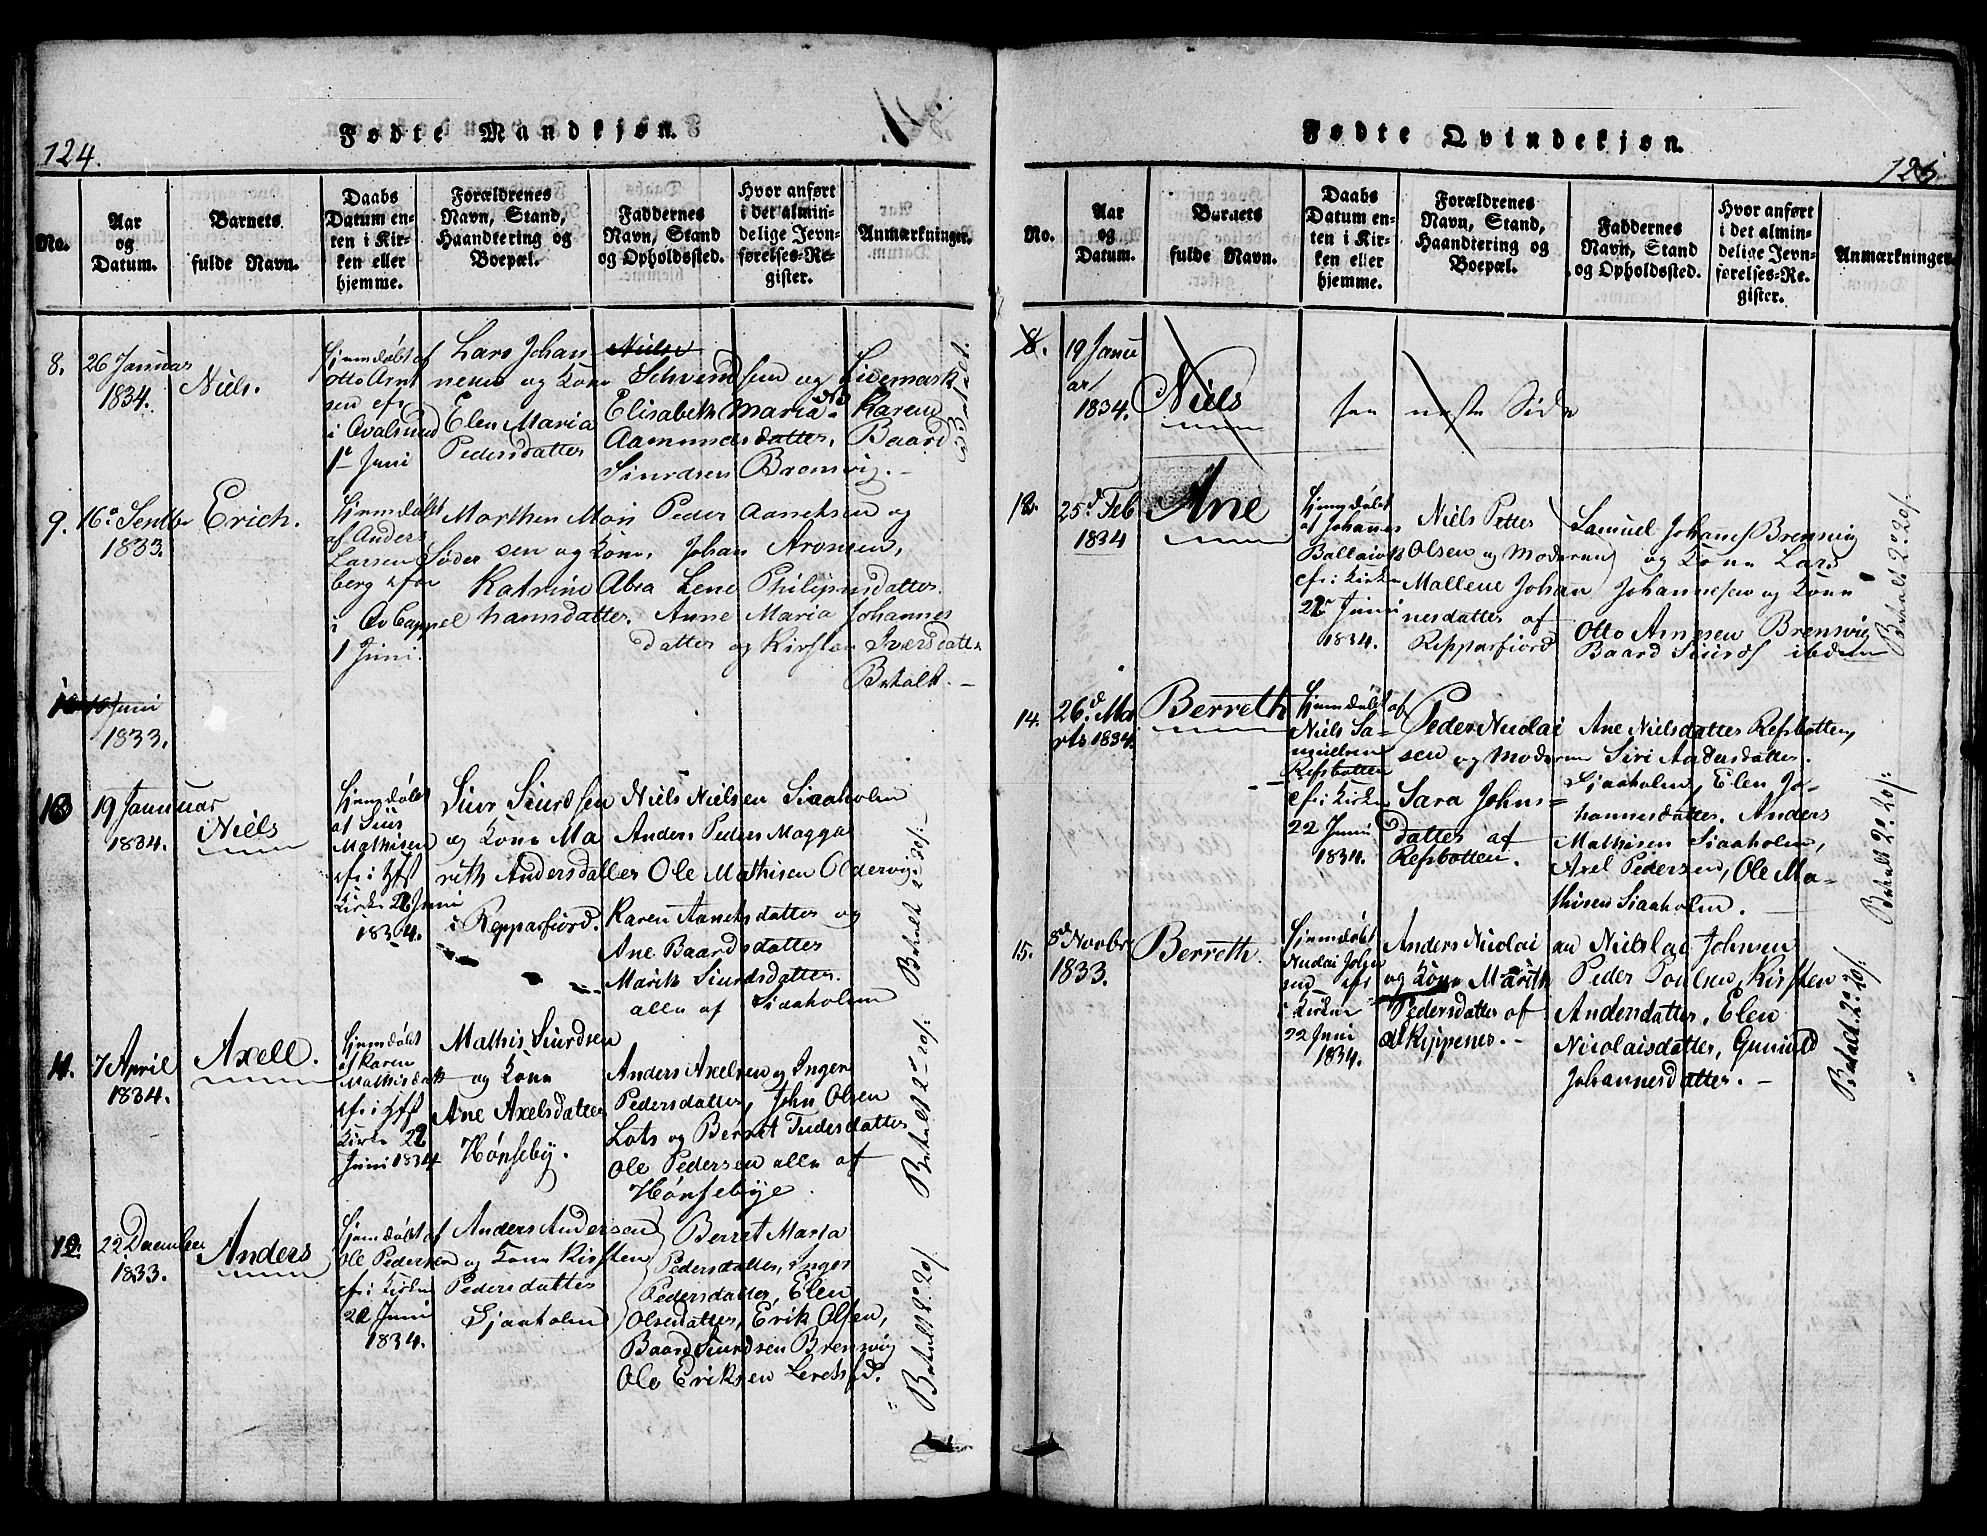 124.
Fødte Mandkjøn.
No.
Aar
og
Datum.
Barnets
fulde Navn.
Daabs
Datum en-
ten i Kir-
ken eller
hjemme.
Forældrenes
Navn, Stand,
Haandtering og
Boepæl.
Faddernes
Navn, Stand
og Opholdssted.
Hvor anført
i det almin-
delige Jevn-
førelses-Re-
gister.
Anmærkninger.
8.
26 Januar
1834.
Niels.
Hjemdøbt af
Otto Arnt
sen
i Qvalsund
1 Juni
Lars Johan
nesen og Kone
Elen Maria
Pedersdatter
Nielse
Schvend sen og
Elisabeth Maria Karen
Aamundsdatter, Baard
Siurdsen
Betalt.
9.
16 Septbr
1833.
Erich.
Hjemdøbt
af Anders
Larsen Søder
berg
i
1 Juni.
Morthen Mon
sen og Kone,
Katrine Abra
hamsdatter.
Peder Aaneksen og
Johan Aronsen,
Lene Philipusdatter
Anne Maria Johannes
datter og Kirsten Iversdatter
Betalt. —
Juni
1833.
10
19 Januar
1834.
Niels
Hjemdøbt
af Siur
Mathisen
Kirke 22 Juni
1834.
Siur Siurdsen
og Kone Ma
reth Andersdatter
i Repparfiord.
Niels Nielsen Siaaholm
Anders Peders Magga
Ole Mathisen Oldervig
Karen Aaneksdatter og
Ane Baardsdatter
Marith Siurdsdatter.
alle af Siaaholm
11.
7 April
1834.
Axell.
Hjemdøbt
af Karen
Mathisdatt
Kirke 22
Juni 1834
Mathis Siurdsen
og Kone
Ane Axelsdatter
Hønseby.
Anders Axelsen og Inger
Pedersdatter, John Olsen
Lots og Berret Tudesdatter
Ole Pedersen alle af
Hønsebye.
12.
22 December
1833.
Anders
Hjemdøbt af
Ole Pedersen
efr i Kirken
22 Juni
1834.
Anders Andersen
og Kone Kirsten
Pedersdatter
Sjaaholm
Berret Maria
Pedersdatter, Inger
Pedersdatter, Elen
Olsedatter, Erik Olsen,
Baard Siurdsen Brensvig
Ole Eriksen
125
Fødte Qvindekjøn.
No.
Aar
og
Datum.
Barnets
fulde Navn.
Daabs
Datum en-
ten i Kir-
ken eller
hjemme.
Forældrenes
Navn, Stand,
Haandtering og
Boepæl.
Faddernes
Navn, Stand
og Opholdssted.
Hvor anført
i det almin-
delige Jevn-
førelses-Re-
gister.
Anmærkninger.
8.
19 Janu
ar
1834.
Niels
see neste Side
25 Feb
1834
Ane
Hjemdøbt
af Johanes
efr i Kirken
22 Juni
1834.
Niels Petter
Olsen og Moderen
Mallene Johan
nesdatter af
Repparfiord
Samuel Johannes Brensvig
og Kone Lars
Johannesen og Kone
Otto Arnesen Brensvig
Baard Siurds ibdem
Betalt 2 20
14.
26 Ma
rts 1834.
Berreth
Hjemdøbt af
Niels Sa-
muelsen
Refsbotten
efr i Kirken
22 Juni
1834.
Peder Nicolai
sen og Moderen
Sara Johns-
datter af
Refsbotten.
Ane Nielsdatter Refsbotten,
Siri Andersdatter.
Sjaaholm, Elen Jo-
hannesdatter. Anders
Mathisen Siaaholm,
Axel Pedersen, Ole Ma-
thisen Siaaholm. —
Betalt 2 20
15.
8 Novbr
1833.
Berreth.
Hjemdøbt
Nicolai John
sen efr
i Kirken
22 Juni
1834.
Anders Nicolai
og Kone Marith
Pedersdatter af
Nielslai Johnsen
Peder Poulsen, Kirsten
Andersdatter, Elen
Nicolaisdatter, Gunild
Johannesdatter. —
Betalt 2 20